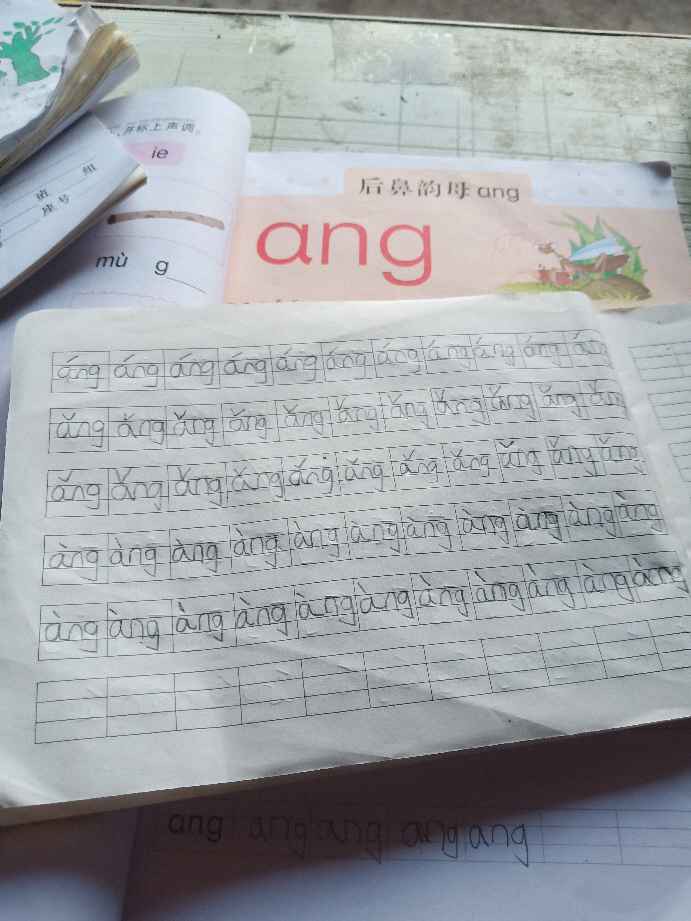 并标上声调。
ie
班 组
座号
mù g
后鼻韵母 ang
ang
áng áng áng áng áng áng áng áng áng áng áng
ǎng ǎng ǎng ǎng ǎng ǎng ǎng ǎng ǎng ǎng ǎng
ǎng ǎng ǎng ǎng ǎng ǎng ǎng ǎng ǎng ǎng ǎng
àng àng àng àng àng àng àng àng àng àng àng
àng àng àng àng àng àng àng àng àng àng àng
ang ang ang ang ang